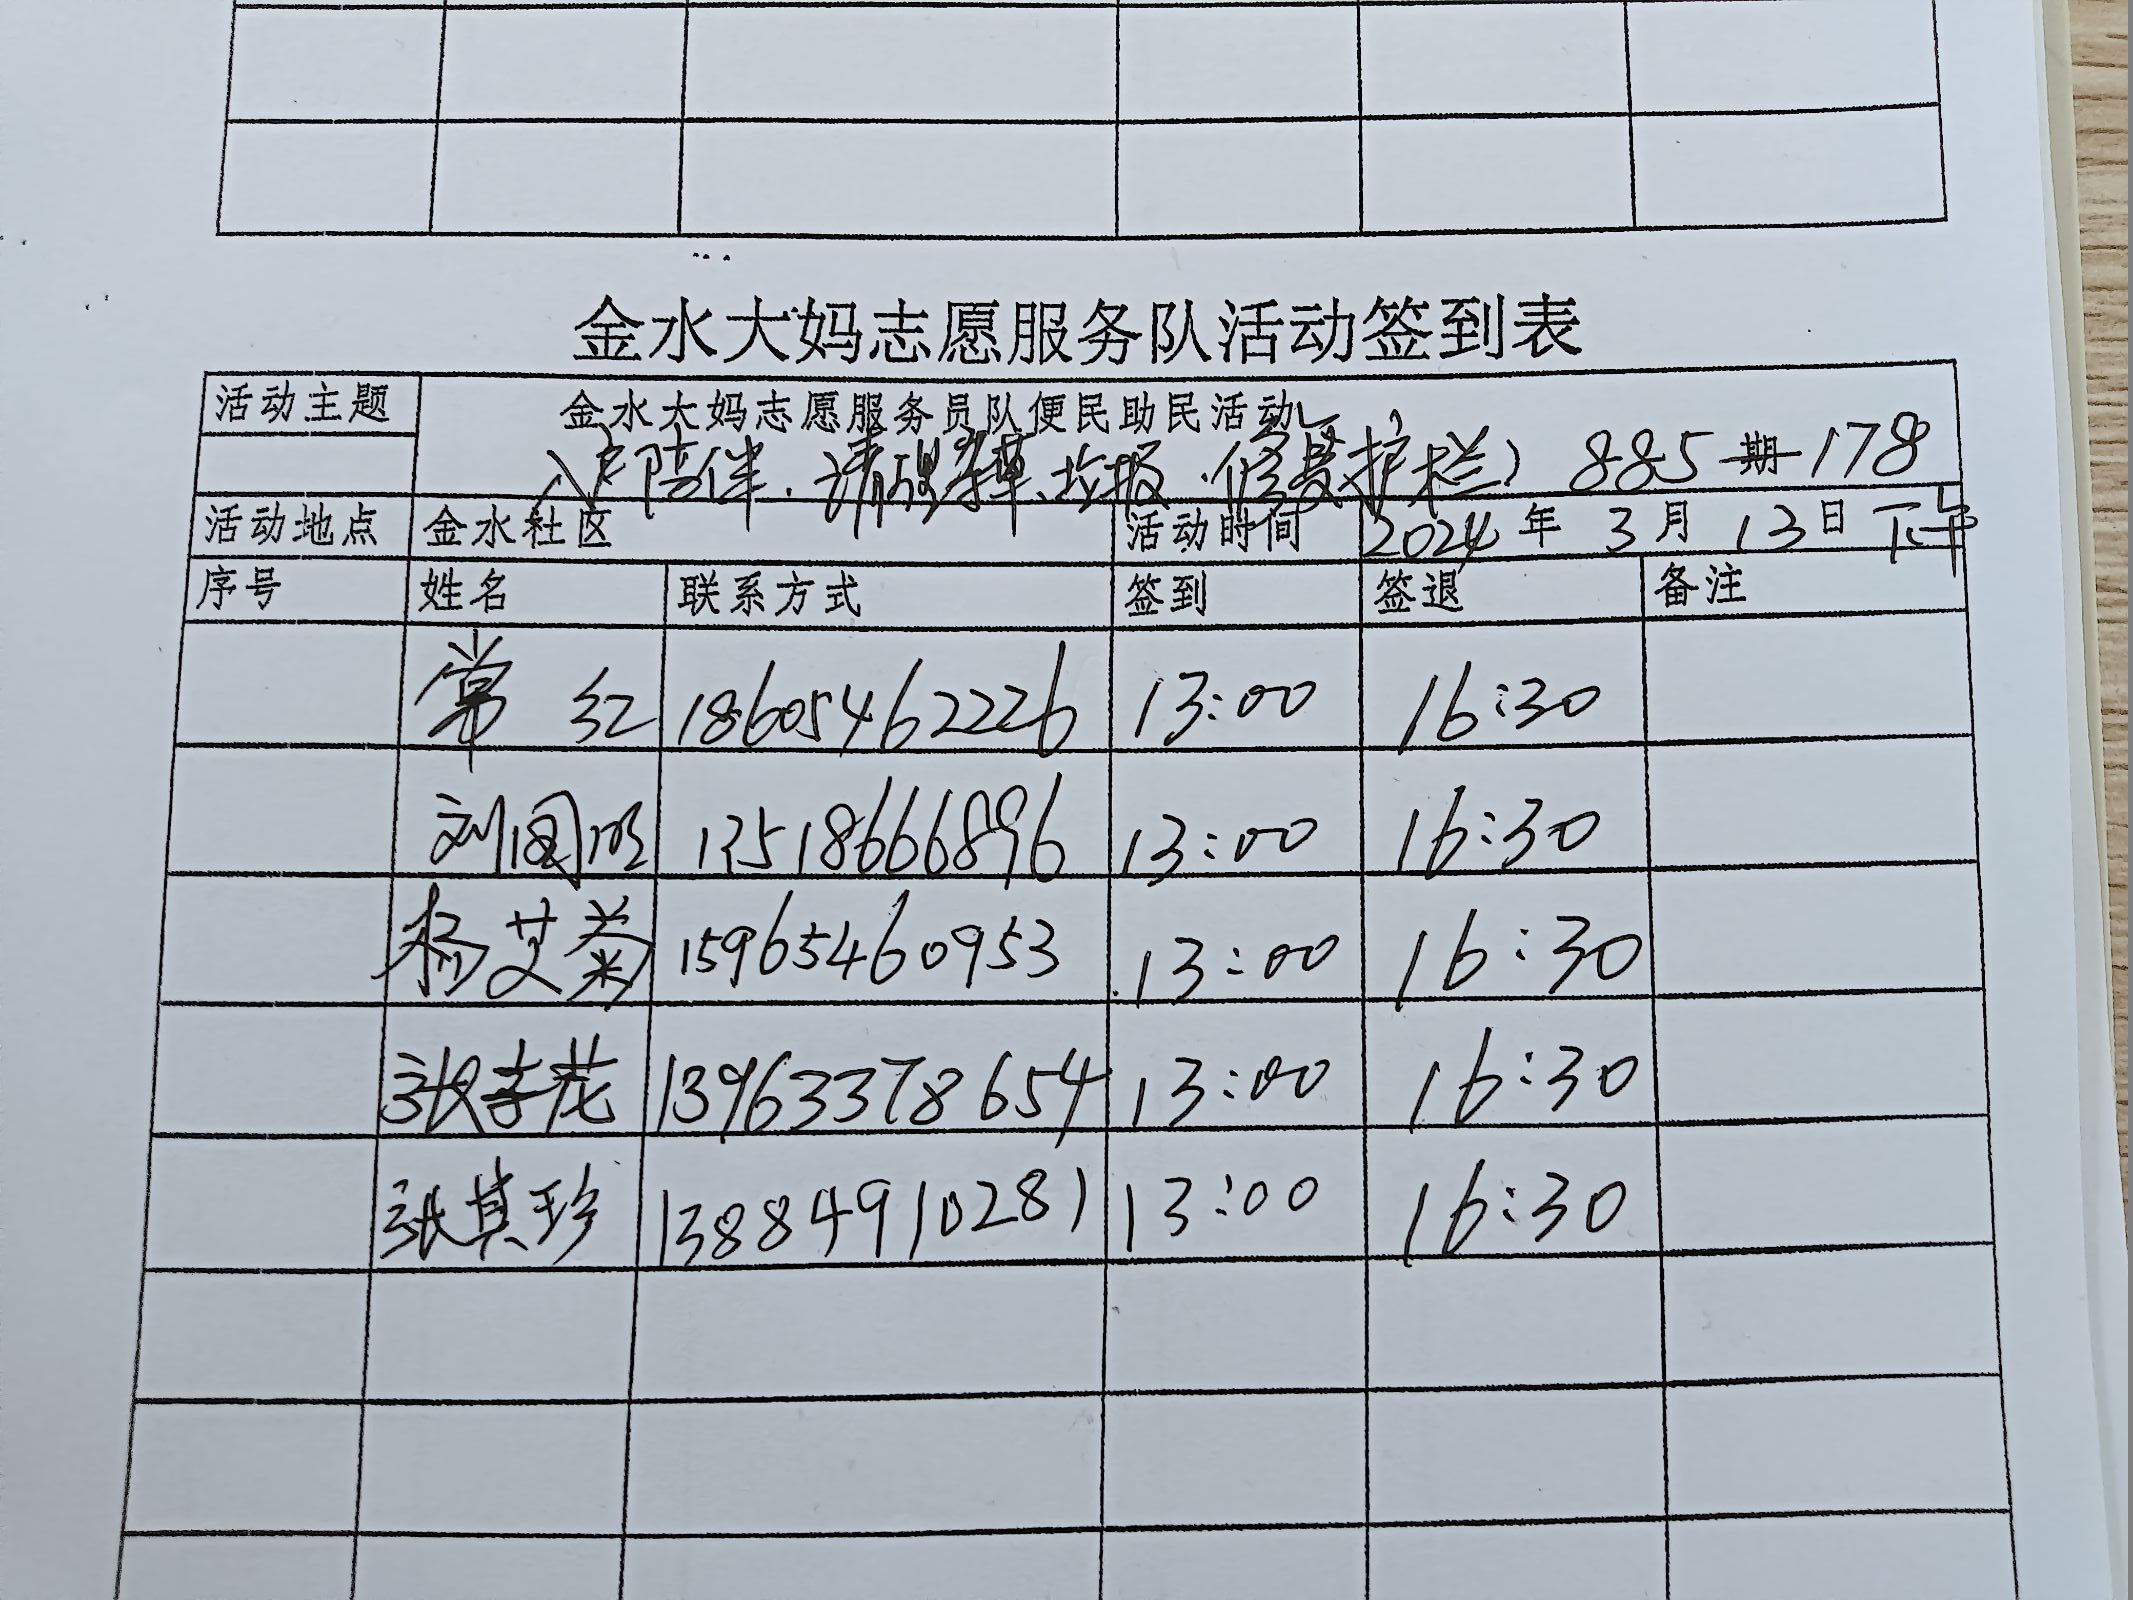 金水大妈志愿服务队活动签到表
活动主题 金水大妈志愿服务员队便民助民活动(
入户陪伴.清理杂草.垃圾.修复护栏) 885期-178
活动地点 金水社区 活动时间 2024年3月13日下午
序号 姓名 联系方式 签到 签退 备注
常红 18605462226 13:00 16:30
刘国明 13518666896 13:00 16:30
杨艾菊 15965460953 13:00 16:30
张李花 13963378654 13:00 16:30
张其珍 13884910281 13:00 16:30